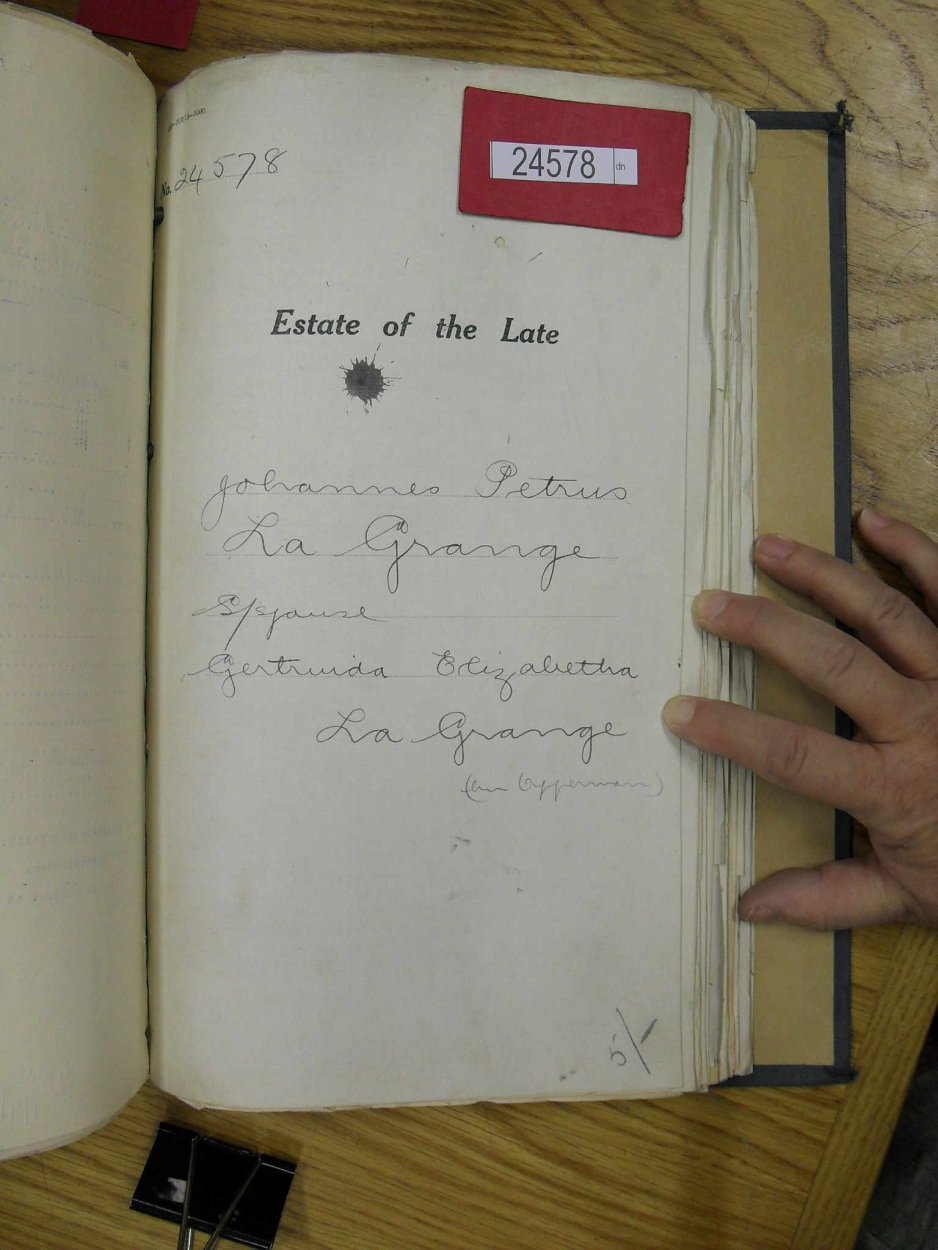 No. 24578
24578 dn
Estate of the Late
Johannes Petrus
La Grange
S/spouse
Gertruida Elizabetha
La Grange
Opperman)
5/